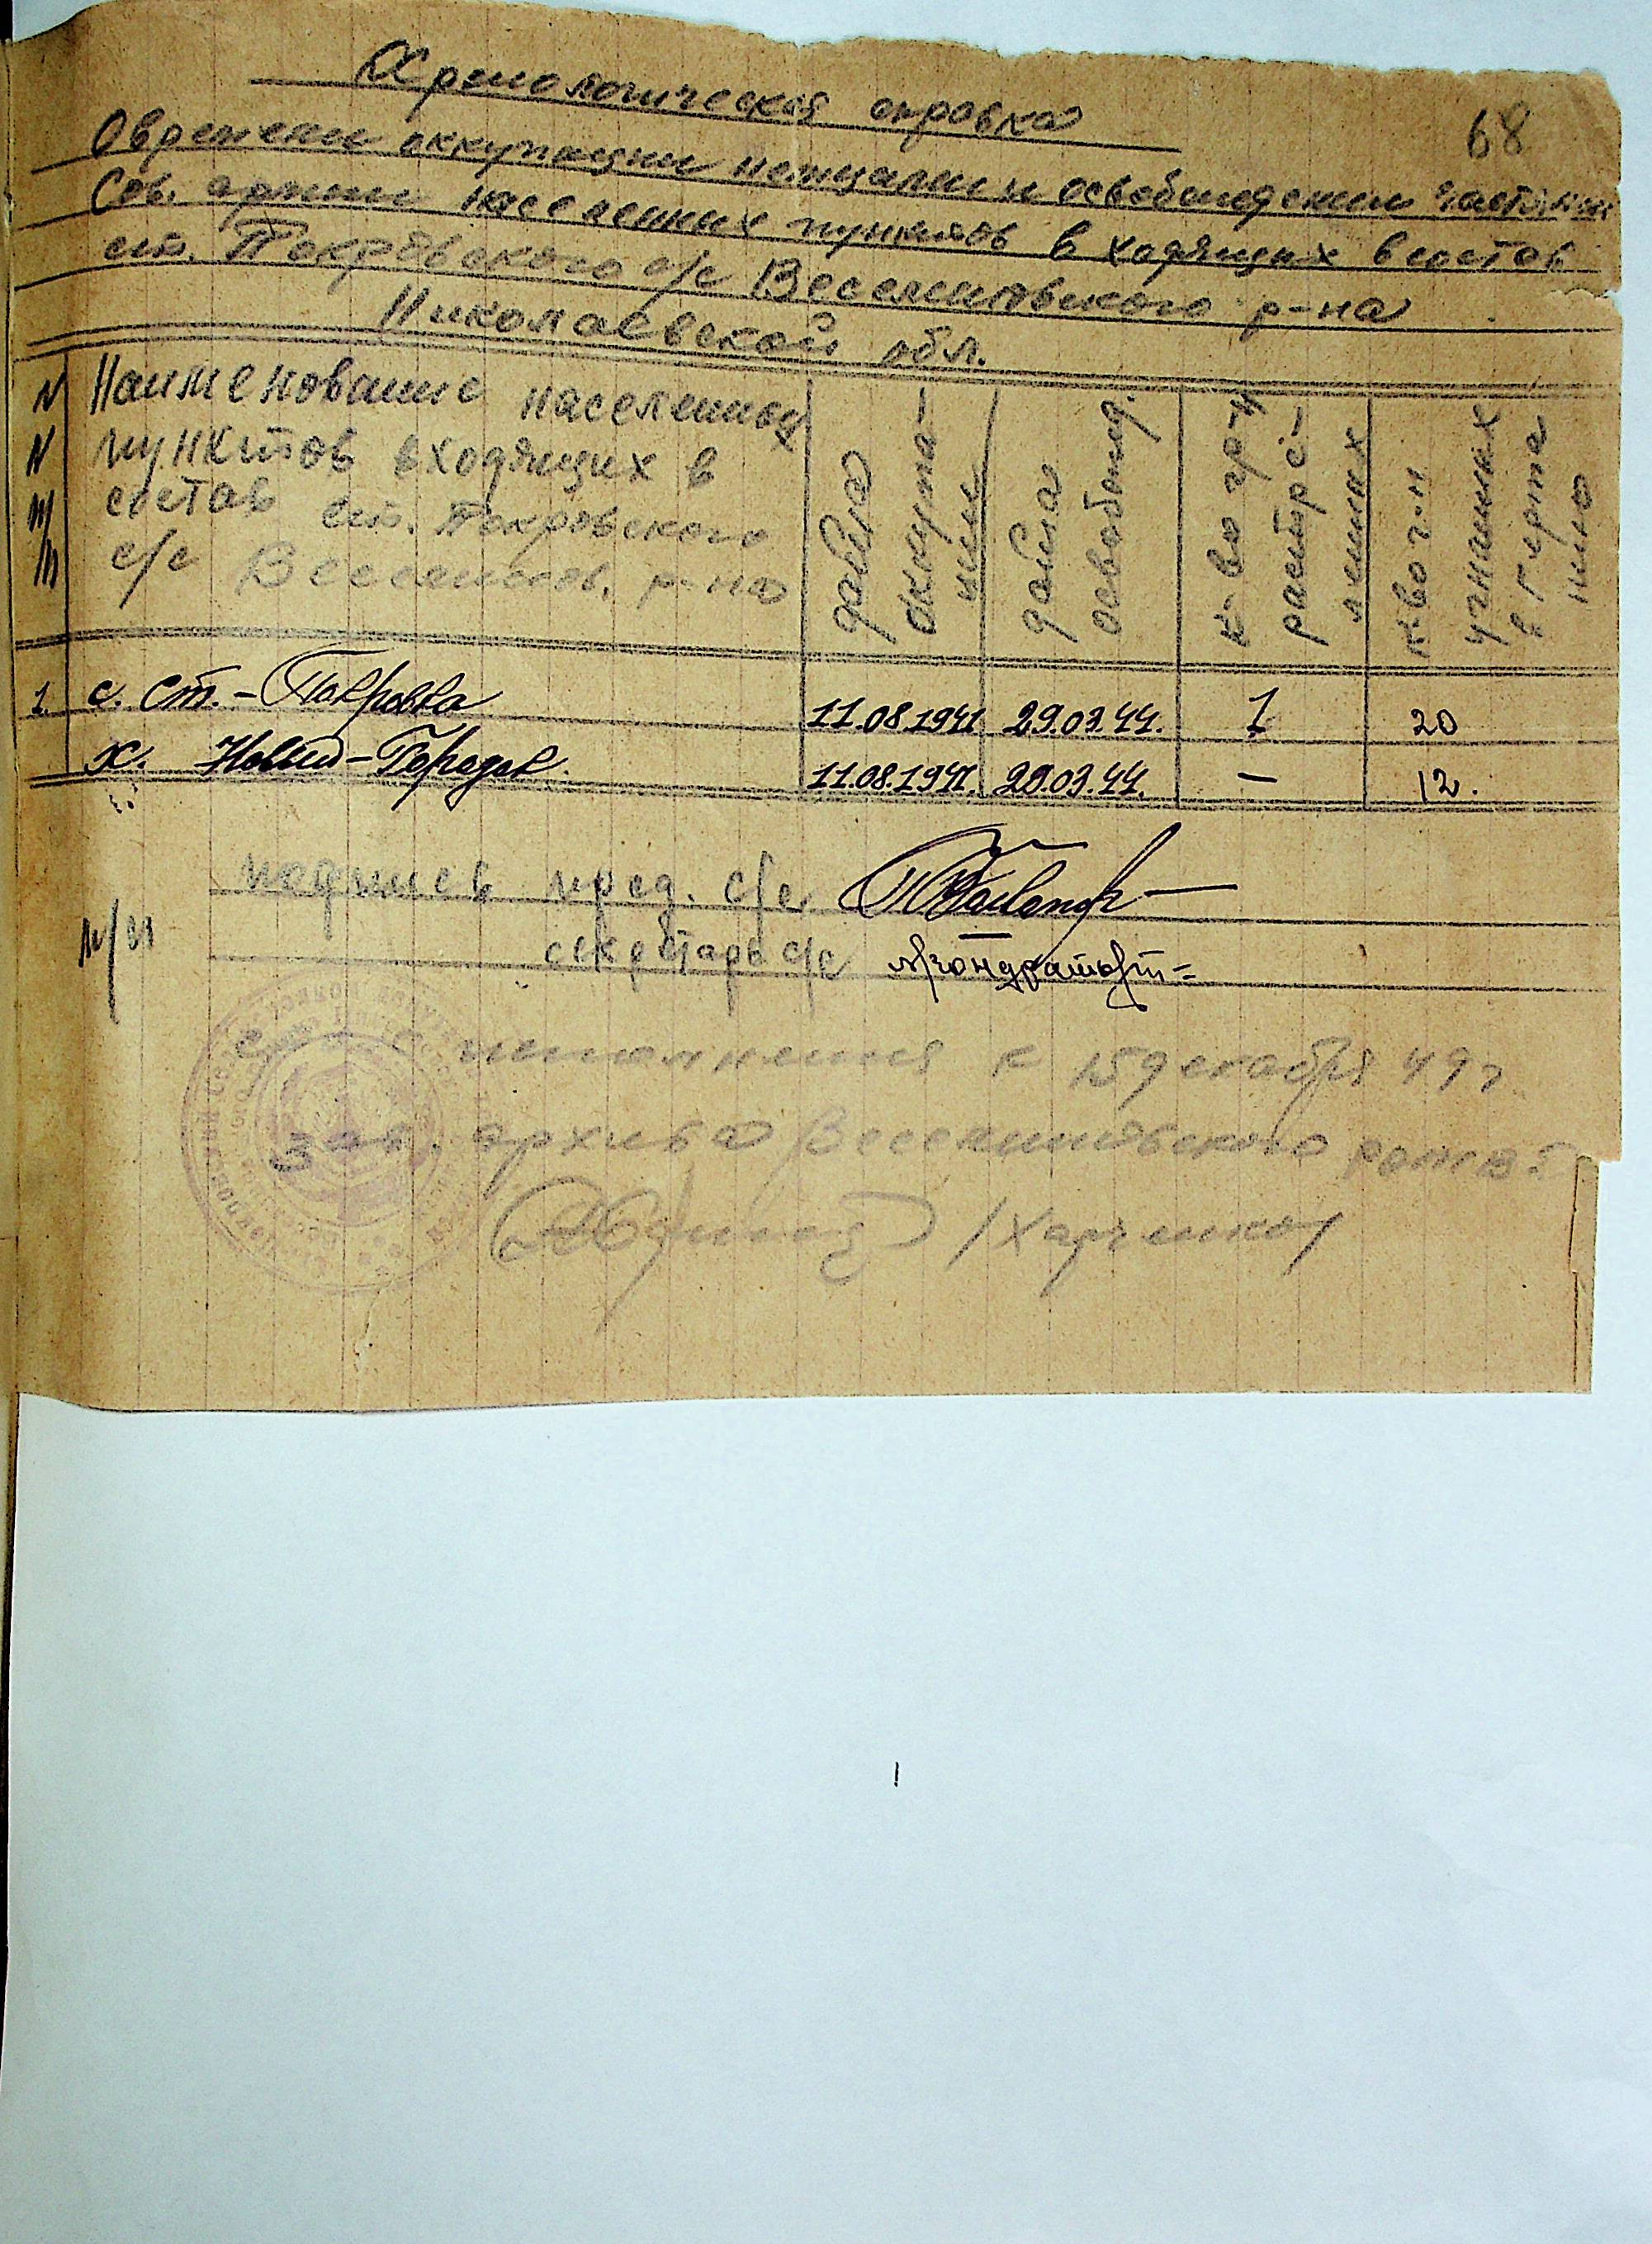 68
Хронологическая справка
О времени оккупации немцами и освобождении частями
Сов. армии населенных пунктов входящих в состав
ст. Покровского с/с Веселиновского р-на
Николаевской обл.
N N п/п | Наименование населенных пунктов входящих в состав ст. Покровского с/с Веселинов. р-на | дата оккупации | дата освобожд. | к-во гр-н расстрелянных | к-во г-н угнанных в Германию
1. с. Ст.-Покровка 11.08.1941 29.03.44. 1 20
х. Новый-Городок. 11.08.1941. 29.03.44. — 12.
м/п
подписи пред. с/с
секретарь с/с
исполнения к 15 декабря 49 г
Зав. архива Веселиновского
/Харченко/